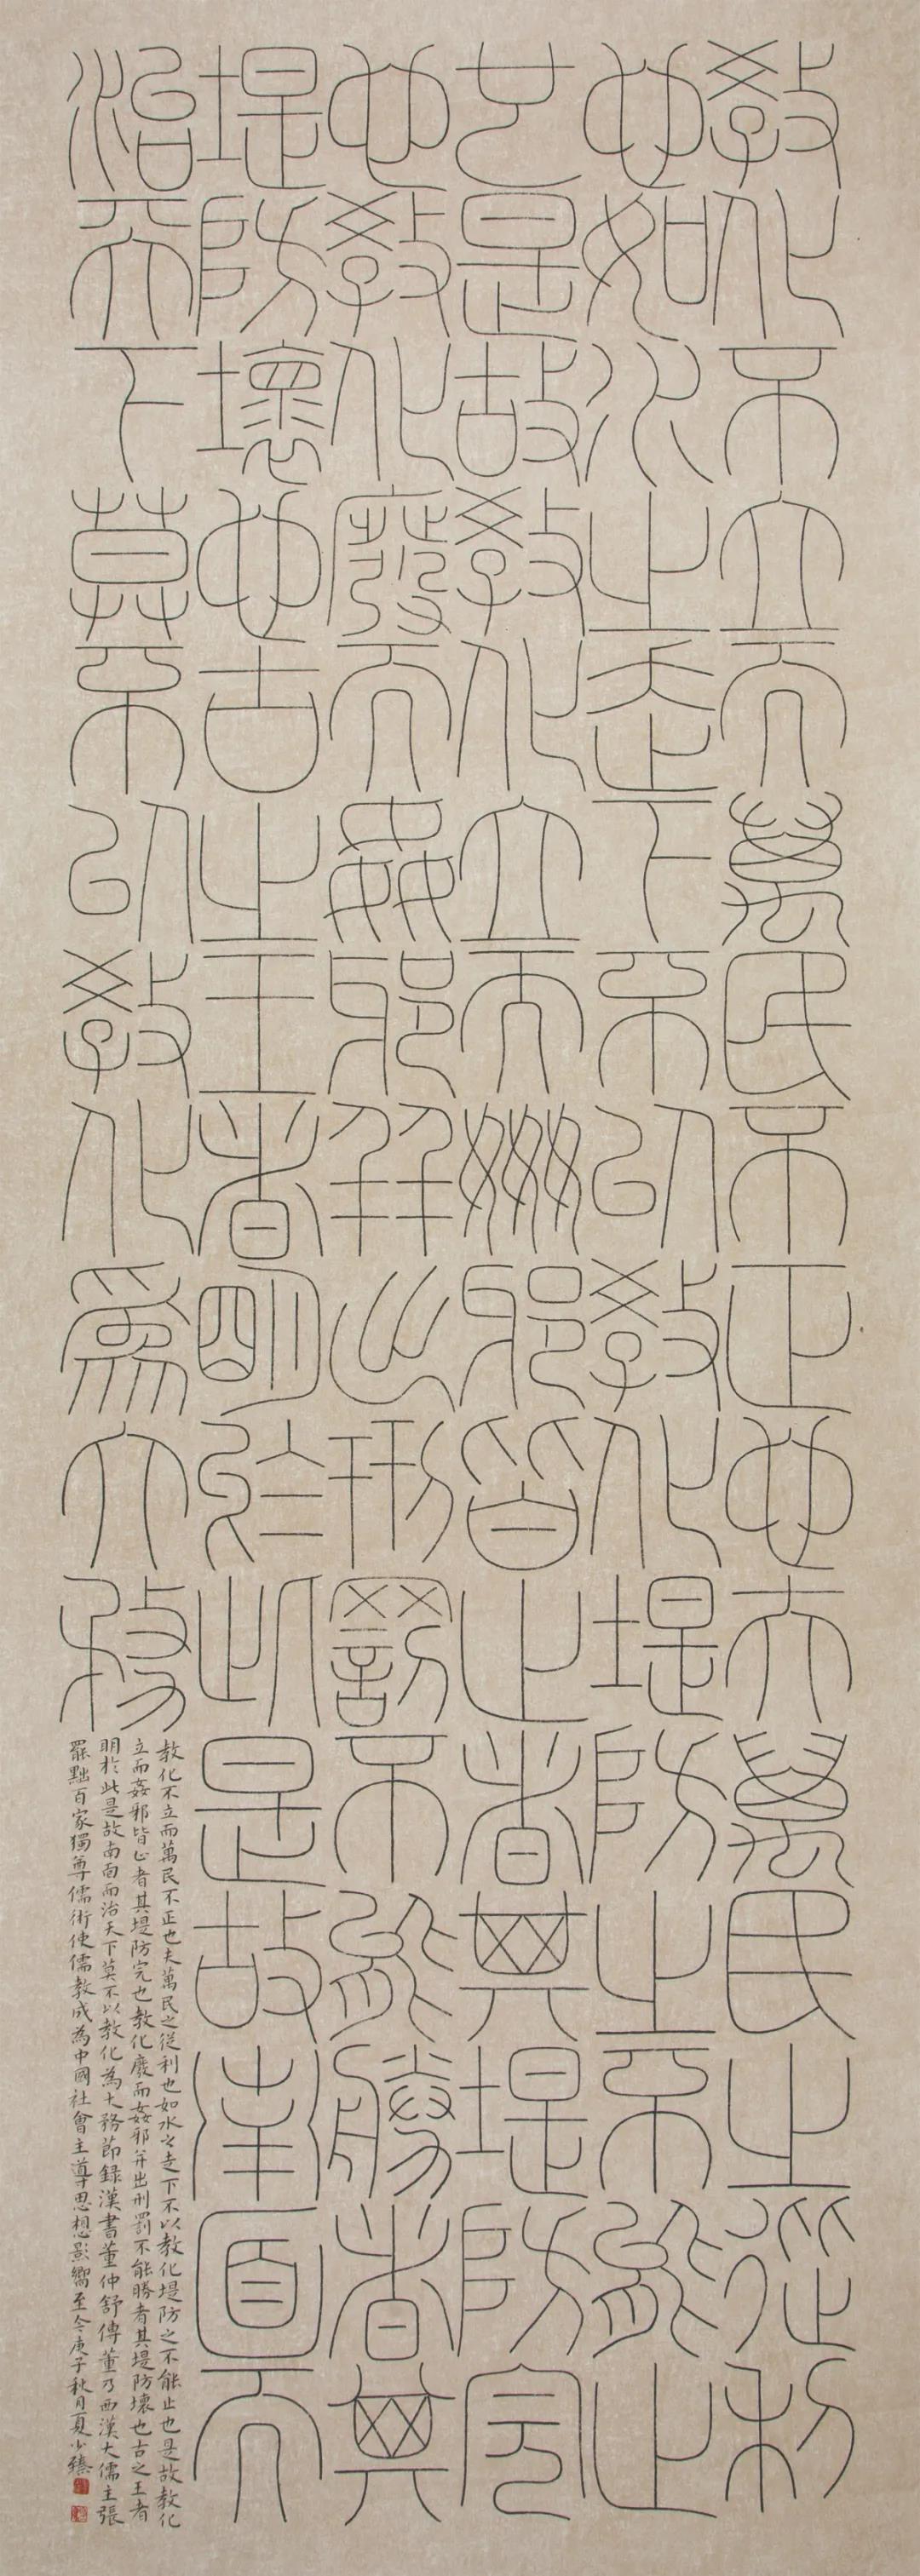 教化不立而萬民不正也夫萬民之從利
也如水之走下不以教化堤防之不能止
也是故教化立而姦邪皆止者其堤防完
也教化廢而姦邪并出刑罰不能勝者其
堤防壞也古之王者明於此是故南面而
治天下莫不以教化為大務
教化不立而萬民不正也夫萬民之從利也如水之走下不以教化堤防之不能止也是故教化
立而姦邪皆止者其堤防完也教化廢而姦邪并出刑罰不能勝者其堤防壞也古之王者
明於此是故南面而治天下莫不以教化為大務節録漢書董仲舒傳董乃西漢大儒主張
罷黜百家獨尊儒術使儒教成為中國社會主導思想影響至今庚子秋月夏小臻